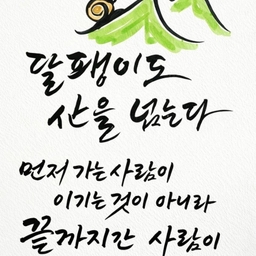 달팽이도
산을 넘는다
먼저 가는 사람이
이기는 것이 아니라
끝까지 간 사람이